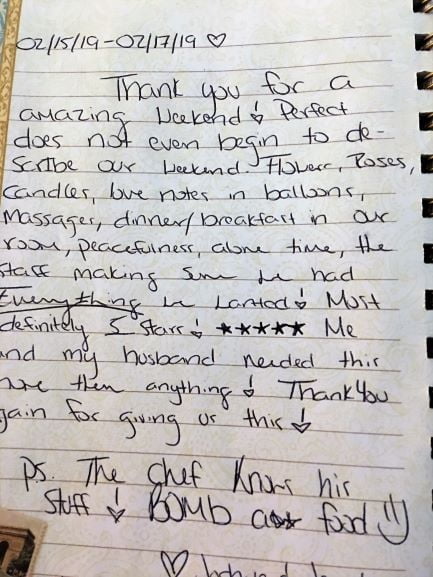 02/15/19-02/17/19 ♡
Thank you for a
amazing weekend! Perfect
does not even begin to de-
scribe our weekend. Flowers, Roses,
candles, love notes in balloons,
massages, dinner/breakfast in our
room, peacefulness, alone time, the
staff making sure we had
Everything we wanted! Most
definitely 5 stars! ★★★★★ Me
and my husband needed this
more then anything! Thank you
gain for giving us this!
Ps. The chef knows his
stuff! BOMB a☆☆ food :)
♡